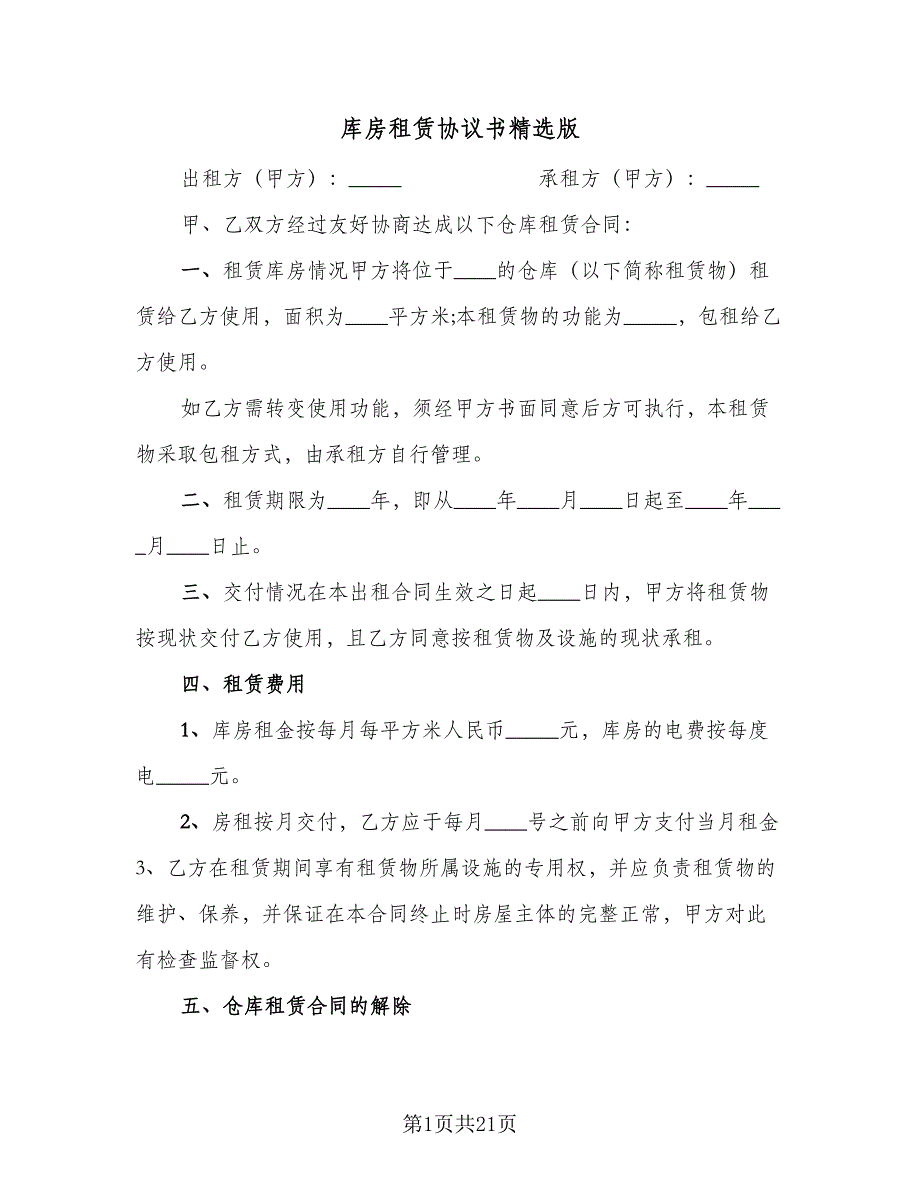 库房租赁协议书精选版
出租方（甲方）：_____ 承租方（甲方）：_____
甲、乙双方经过友好协商达成以下仓库租赁合同：
一、租赁库房情况甲方将位于____的仓库（以下简称租赁物）租
赁给乙方使用，面积为____平方米;本租赁物的功能为_____，包租给乙
方使用。
如乙方需转变使用功能，须经甲方书面同意后方可执行，本租赁
物采取包租方式，由承租方自行管理。
二、租赁期限为____年，即从____年____月____日起至____年___
_月____日止。
三、交付情况在本出租合同生效之日起____日内，甲方将租赁物
按现状交付乙方使用，且乙方同意按租赁物及设施的现状承租。
四、租赁费用
1、库房租金按每月每平方米人民币_____元，库房的电费按每度
电_____元。
2、房租按月交付，乙方应于每月____号之前向甲方支付当月租金
3、乙方在租赁期间享有租赁物所属设施的专用权，并应负责租赁物的
维护、保养，并保证在本合同终止时房屋主体的完整正常，甲方对此
有检查监督权。
五、仓库租赁合同的解除
第1页共21页